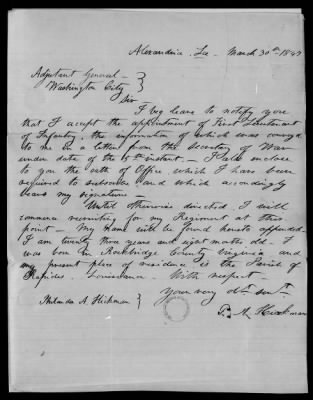 Alexandria. La. March 30th 1847
Adjutant General
Washington City
Sir
I beg leave to notify you
that I accept the appointment of First Lieutenant
of Infantry, the information of which was conveyed
to me in a letter from the Secretary of War
under date of the instant. I also inclose
to you the oath of Office which I have been
required to subscribe and which accordingly
bears my signature
Until otherwise directed I will
commence recruiting for my Regiment at this
point - My name will be found hereto appended.
I am twenty three years and eight months old. I
was born in Rockbridge County Virginia and
my present place of residence is the Parish of
Rapides. Louisiana. With respect
Your very obt Servt
A. Hickman
A. Hickman